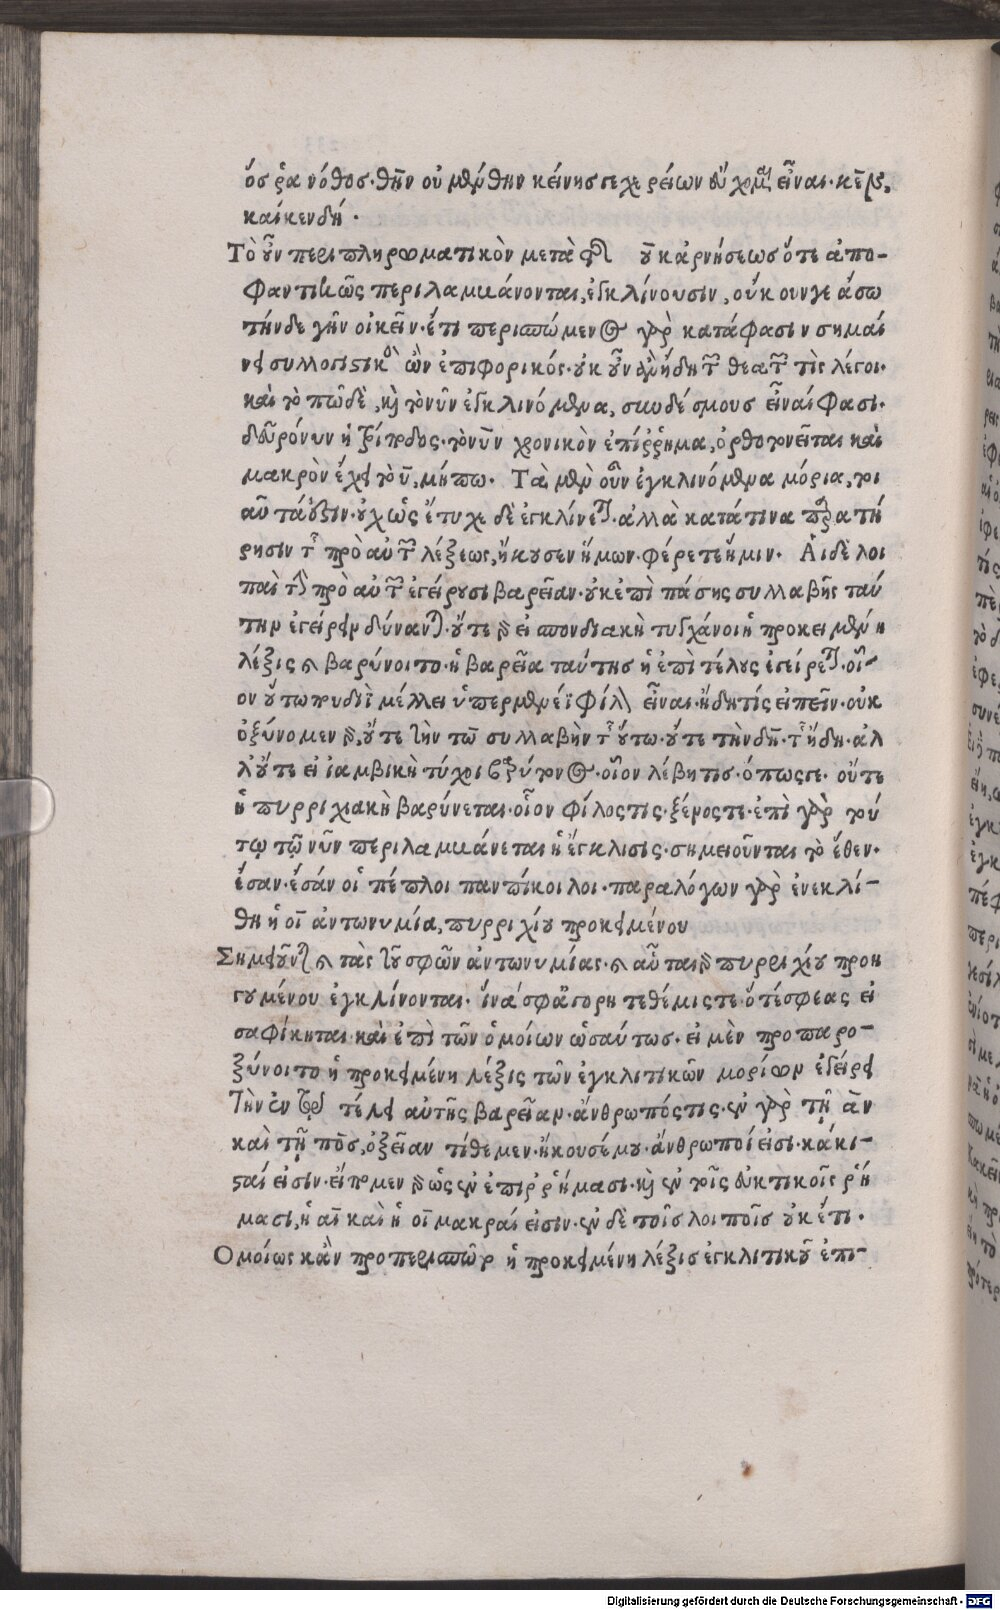 ὅς ῥα νόθος· θὴν οὐ μὲν θην κείνης γε χερείων εὔχομαι εἶναι· κὲν
καὶ κεν δή.
Τὸ οὖν περιπληρωματικὸν μετὰ οὐκ ἀρνήσεως ὅτε ἀπο-
φαντικῶς περιλαμβάνονται, ἐγκλίνουσιν, οὔκουν γε ἄσω
τήνδε γῆν οἰκεῖν· ἔτι περισπώμενος γὰρ κατάφασιν σημαί
νει συλλογιστικὸς ὢν ἐπιφορικός· οὐκοῦν ἐπειδὴ τοῦ θεάτρου τὶς λέγοι·
καὶ τὸ πῶ δὲ, καὶ τὸ νῦν ἐγκλινόμενα, συνδέσμους εἶναί φασι·
δεῦρό νυν ἢ τρίποδος· τὸ νῦν χρονικὸν ἐπίρρημα, ὀρθοτονεῖται καὶ
μακρὸν ἔχει τὸ υ, μήπω. Τὰ μὲν οὖν ἐγκλινόμενα μόρια, τοι
αῦτά ἐστιν· οὐχ ὡς ἔτυχε δὲ ἐγκλίνεται· ἀλλὰ κατά τινα παρατή
ρησιν τῆς πρὸ αὐτῶν λέξεως, ἤκουσεν ἥμων· φέρετε ἥμιν. Αἱ δὲ λοι
παὶ τὴν πρὸ αὐτῶν ἐγείρουσι βαρεῖαν· οὐκ ἐπὶ πάσης συλλαβῆς ταύ
την ἐγείρειν δύνανται· οὔτε γὰρ εἰ σπονδιακὴ τυγχάνοι ἡ προκειμένη
λέξις καὶ βαρύνοιτο· ἡ βαρεῖα ταύτης ἡ ἐπὶ τέλους ἐγείρεται· οἷ-
ον οὕτω που διῒ μέλλει ὑπερμενέϊ φίλον εἶναι· ἤδη τίς εἰπεῖν· οὐκ
ὀξύνομεν γὰρ, οὔτε τὴν τω συλλαβὴν τῆς οὕτω· οὔτε τὴν δη· τῆς ἤδη· ἀλ
λ' οὔτε εἰ ἰαμβικὴ τύχοι βαρύτονος· οἷον λέβης τις· ὅπως γε· οὔτε
ἡ πυρριχιακὴ βαρύνεται· οἷον φίλος τις· ξένος τε· ἐπὶ γὰρ τού
τῳ τῷ νῦν περιλαμβάνεται ἡ ἔγκλισις· σημειοῦνται τὸ ἕθεν·
ἔσαν· ἔσάν οἱ πέπλοι παμποίκιλοι· παραλόγων γὰρ ἐνεκλί-
θη ἡ οἷ ἀντωνυμία, πυρριχίου προκειμένου
Σημειοῦνται καὶ τὰς τοῦ σφῶν ἀντωνυμίας· καὶ αὗται γὰρ πυρριχίου προη
γουμένου ἐγκλίνονται· ἵνά σφ' ἀγορή τε θέμις τε· ὅτέ σφεας εἰ
σαφίκηται καὶ ἐπὶ τῶν ὁμοίων ὡσαύτως· εἰ μὲν προπαρο-
ξύνοιτο ἡ προκειμένη λέξις τῶν ἐγκλιτικῶν μορίων ἐγείρει
τὴν ἐν τῷ τέλει αὐτῆς βαρεῖαν· ἄνθρωπός τις· ἐν γὰρ τῇ ἂν
καὶ τῇ πος, ὀξεῖαν τίθεμεν· ἤκουσέ μου· ἄνθρωποί εἰσι· κάκι-
σταί εἰσιν· εἴπομεν γὰρ ὡς ἐν ἐπιρρήμασι· καὶ ἐν τοῖς εὐκτικοῖς ῥή
μασι, ἡ αι καὶ ἡ οι μακραί εἰσιν· ἐν δὲ τοῖς λοιποῖς οὐκ ἔτι.
Ὁμοίως κἂν προπερισπῶτο ἡ προκειμένη λέξις ἐγκλιτικοῦ ἐπι-
Digitalisierung gefördert durch die Deutsche Forschungsgemeinschaft - DFG